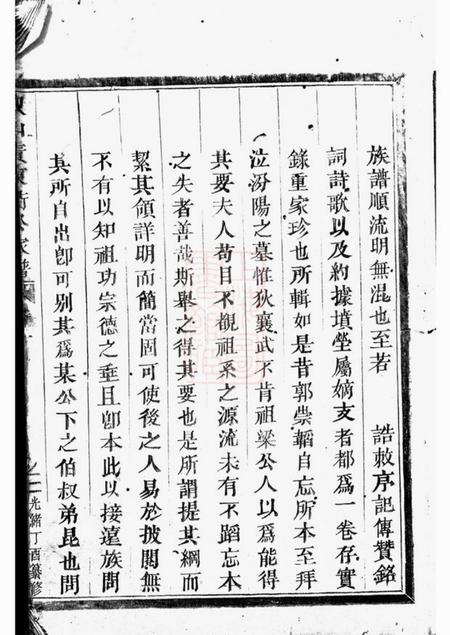 族譜順流明無混也至若　誥敕序記傳贊銘
詞詩歌以及約據墳塋屬嫡支者都為一卷存實
錄重家珍也所輯如是昔郭崇韜自忘所本至拜
泣汾陽之墓惟狄襄武不肯祖梁公人以為能得
其要夫人苟目不覩祖系之源流未有不蹈忘本
之失者善哉斯舉之得其要也是所謂提其綱而
絜其領詳明而簡當固可使後之人易於披閱無
不有以知祖功宗德之垂且卽本此以接遠族問
其所自出卽可別其為某公下之伯叔弟昆也問
家譜
光緒丁酉纂修